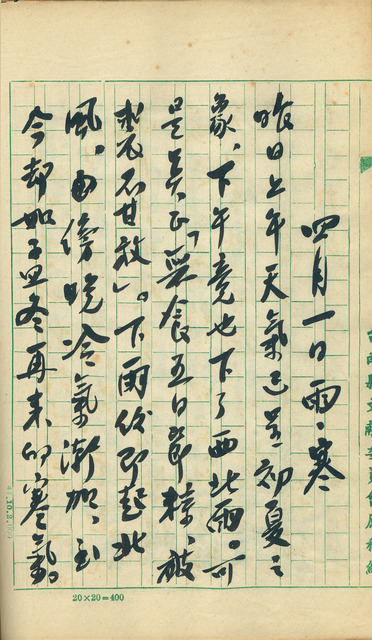 四月一日雨·寒
昨日上午天氣已是初夏之
象,下午竟也下了西北雨。可
是真正「未食五日節粽,破
裘不甘放」。下雨後即起北
風,由傍晚冷氣漸加,至
今却如子一旦冬再来的寒氣。
20×20=400